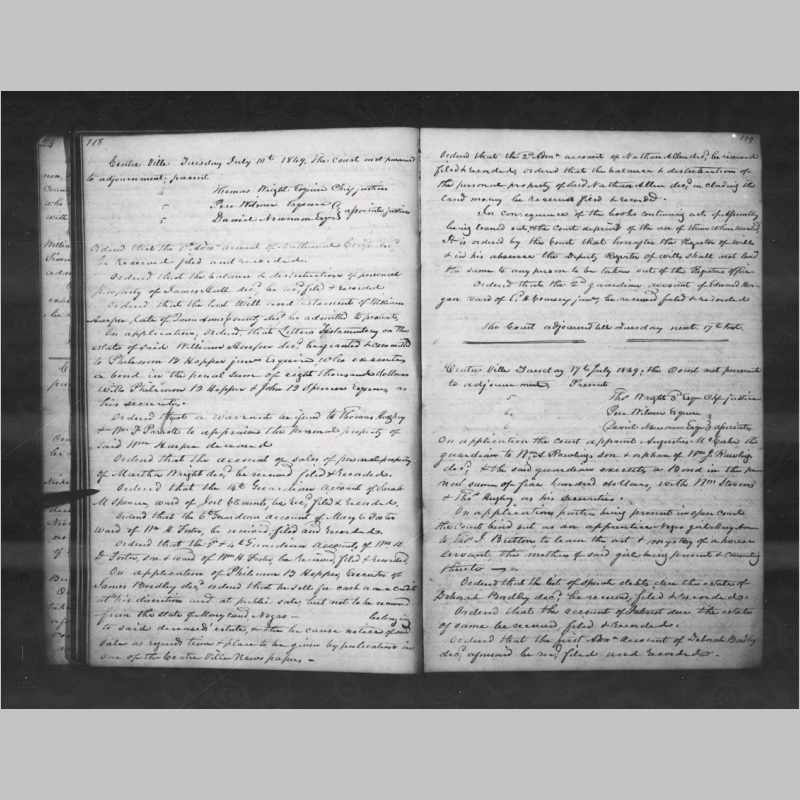 118
Centre Ville Tuesday July 10th 1849. The Court met pursuant
to adjournment; present
Thomas Wright Esquire Chief justice
Pere Wilmer Esquire
Daniel Newnam Esqr associate justices
Ordered that the account of
be received filed and recorded.
Ordered that the balance & distributions of personal
property of James decd be recd filed & recorded
Ordered that the last Will and testament of William
Harper, late of Queen Anns county, decd be admitted to probate
On application, Ordered, that Letters Testamentary on the
estate of said William Harper decd be granted & committed
to Philemon B Hopper junr Esquire, who executes
a bond in the penal sum of eight thousand dollars
with Philemon B Hopper & John B Spencer Esquires as
his securities.
Ordered that a warrant be issued to Thomas
& Wm to appraise the personal property of
said Wm Harper deceased
Ordered that the account of sales of personal property
of Martha Wright decd be received filed & recorded.
Ordered that the 4th Guardian account of Sarah
M Spencer, ward of Joel Clements, be recd filed & recorded.
Ordered that the 6th Guardian account of Mary C Foster
ward of Wm H Foster, be received, filed and recorded.
Ordered that the & 4th Guardian Accounts, of Wm H.
D Foster, son & ward of Wm H. Foster, be received, filed & recorded
On application of Philemon B Hopper, Executor of
James Bradley decd ordered that he sell for cash or on credit
at his discretion and at public sale, but not to be removed
from the state of Maryland, Negro — belonging
to said deceaseds estate, & that he cause notice of said
sale as regards time & place to be given by publication in
one of the Centre Ville Newspapers. —
119
Ordered that the 2d Admn account of Nathan Allen decd, be received
filed & recorded & ordered that the balance & distribution of
the personal property of said Nathan Allen decd including the
land money be received filed & recorded.
In consequence of the books containing acts of Assembly
being loaned out, & the Court deprived of the use of them when wanted,
It is ordered by the Court that hereafter the Register of wills
& in his absence the Deputy Register of wills shall not lend
the same to any person to be taken out of the Registers office.
Ordered that the 2d guardian account of Edward
ward of junr, be received filed & recorded
The Court adjourned till Tuesday next 17th Inst.
Centre Ville Tuesday 17th July 1849; the Court met pursuant
to adjournment, Present
Thos Wright 3d Esqr Chf. justice
Pere Wilmer Esquire
Daniel Newnam Esqr associates
On application the Court appoint Augustine McCabe the
guardian to Wm S Rawlings son & orphan of Wm J. Rawlings
decd, & the said guardian executes a Bond in the pe-
nal sum of five hundred dollars, with Wm Stevens
& Thos as his securities.
On application, parties being present in open court
the Court bind out as an apprentice negro girl Mary
to Thos J. Burton to learn the art & mystery of a house
servant, the mother of said girl being present & consenting
thereto —
Ordered that the list of Sperate debts due the estate of
Deborah Bradley decd, be received, filed & recorded.
Ordered that the account of Interest due the estate
of same be received filed & recorded.
Ordered that the first Admn account of Deborah Bradley
decd, aforesaid be recd filed and recorded.